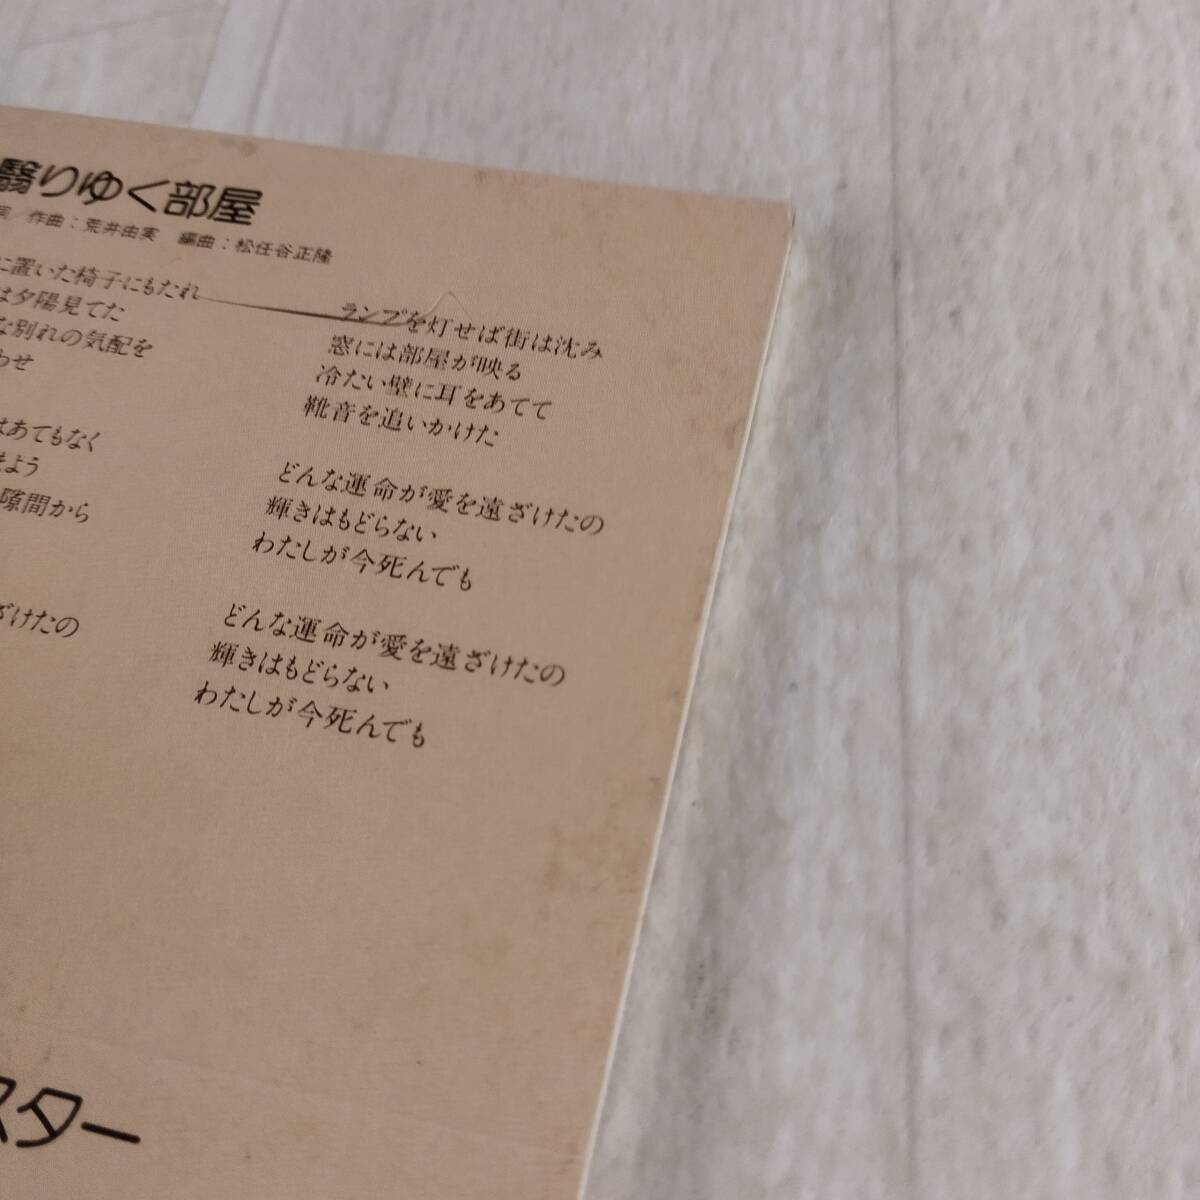 翳りゆく部屋
作曲：荒井由実 編曲：松任谷正隆
に置いた椅子にもたれ
は夕陽見てた
な別れの気配を
わせ
はあてもなく
よう
隙間から
ざけたの
ランプを灯せば街は沈み
窓には部屋が映る
冷たい壁に耳をあてて
靴音を追いかけた
どんな運命が愛を遠ざけたの
輝きはもどらない
わたしが今死んでも
どんな運命が愛を遠ざけたの
輝きはもどらない
わたしが今死んでも
スター